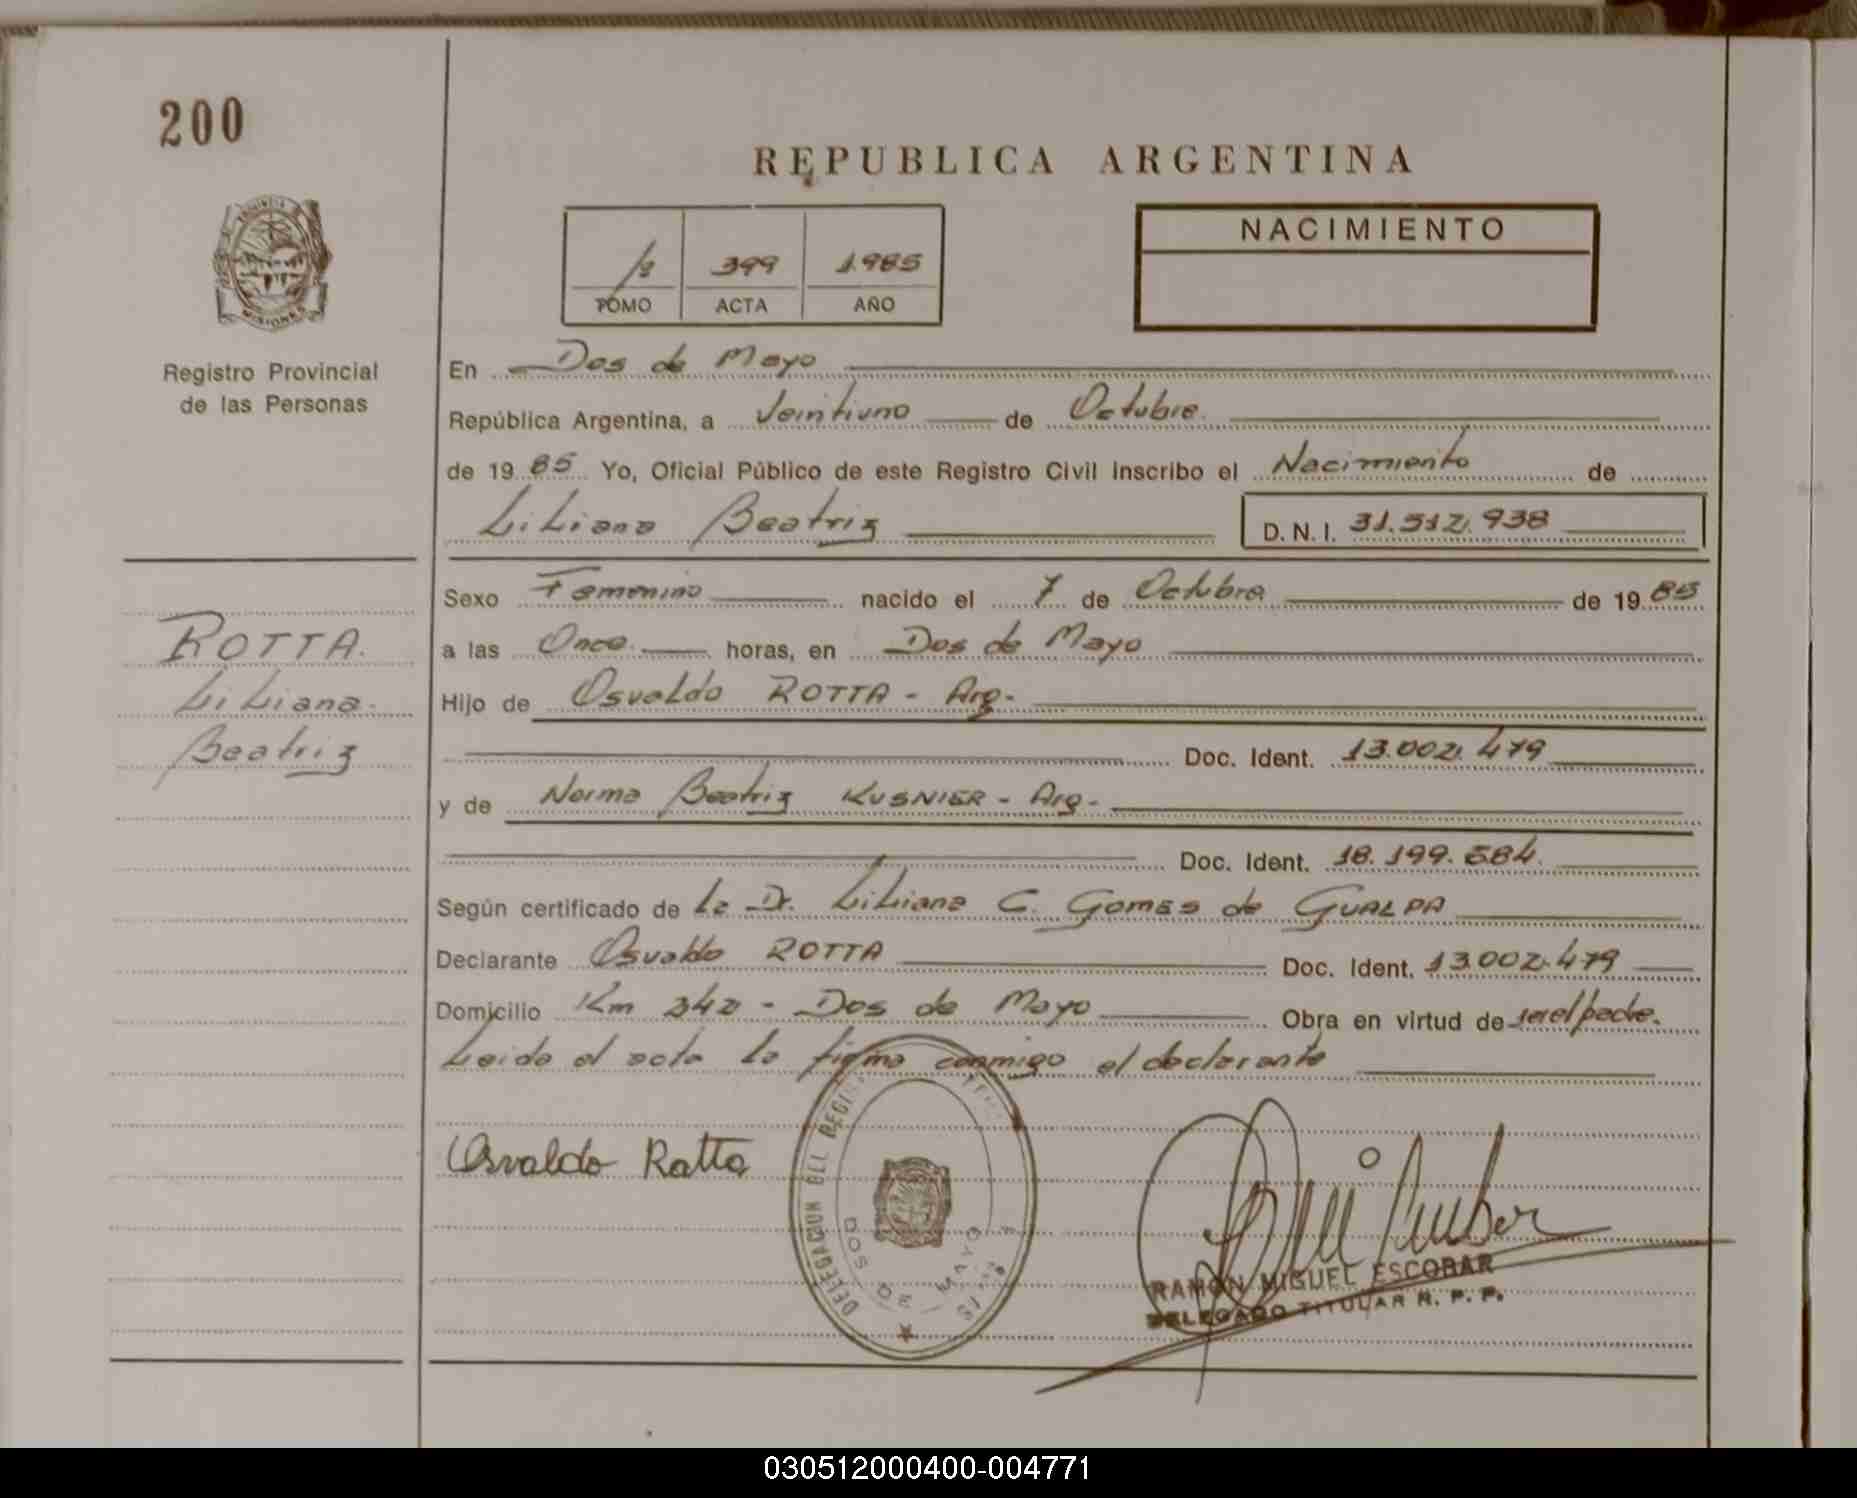 200
REPUBLICA ARGENTINA
NACIMIENTO
1º 399 1.985
TOMO ACTA AÑO
PROVINCIA
MISIONES
Registro Provincial
de las Personas
En Dos de Mayo
República Argentina, a Veintiuno de Octubre.
de 19 85 Yo, Oficial Público de este Registro Civil inscribo el Nacimiento de
Liliana Beatriz D. N. I. 31.512.938
Sexo Femenino nacido el 7 de Octubre de 19 85
a las Once horas, en Dos de Mayo
Hijo de Osvaldo ROTTA - Arg.
Doc. Ident. 13.002.479
y de Norma Beatriz KUSNIER - Arg.
Doc. Ident. 18.199.584.
Según certificado de la Dr. Liliana C. Gomes de GUALPA
Declarante Osvaldo ROTTA Doc. Ident. 13.002.479
Domicilio Km 242 - Dos de Mayo Obra en virtud de ser el padre.
Leida el acta la firma conmigo el declarante
ROTTA.
Liliana
Beatriz
Osvaldo Rotta
DELEGACION DEL
DOS DE MAYO
RAMON MIGUEL ESCOBAR
DELEGADO TITULAR R. P. P.
030512000400-004771